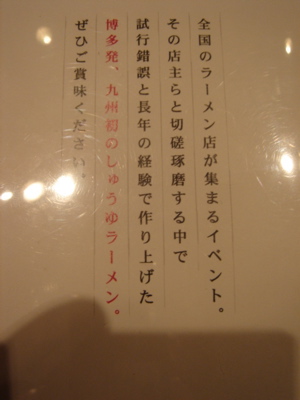 全国のラーメン店が集まるイベント。
その店主らと切磋琢磨する中で
試行錯誤と長年の経験で作り上げた
博多発、九州初のしょうゆラーメン。
ぜひご賞味ください。